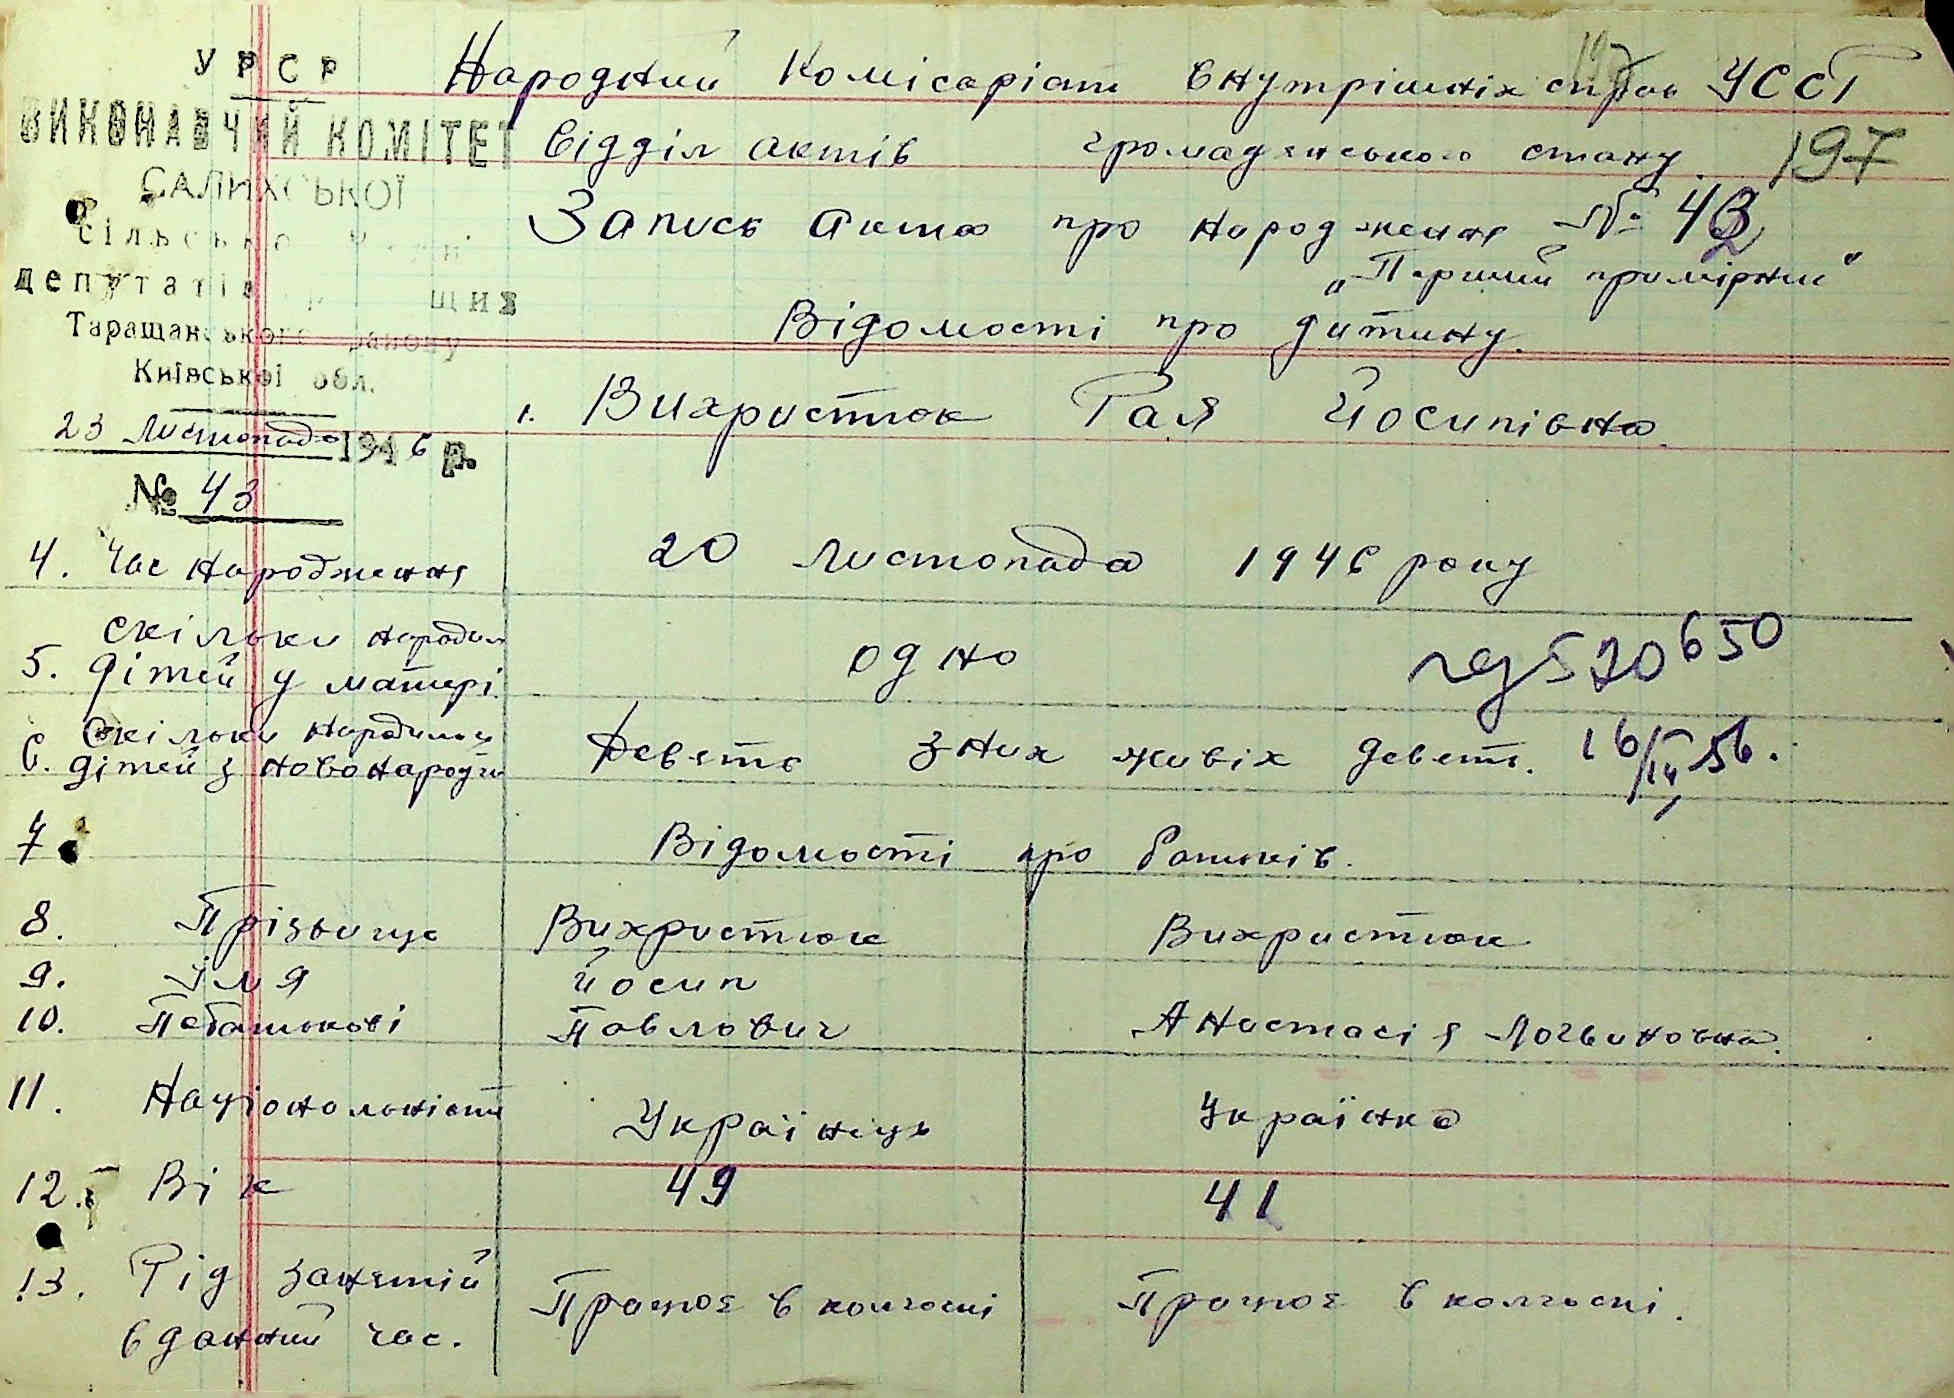 УРСР
ВИКОНАВЧИЙ КОМІТЕТ
САЛИХСЬКОЇ
депутатів щих
Таращанського району
Київської обл.
23 листопада 1946 р.
№ 43
Народний Комісаріат внутрішніх справ УССР
197
Відділ актів громадянського стану.
197
Запись акта про народження № 42
„Перший промірник“
Відомості про дитину.
1. Вихристюк Рая Йосипівна.
4. Час народження 20 листопада 1946 року
5. Скільки народил дітей у матері. одно
520650
6. Скільки народилось дітей з новонародж Девято з них живіх девет.
16/IV 56.
7. Відомості про батьків.
8. Прізвище Вихристюк Вихристюк
9. Імя Йосип
10. Пебатькові Павлович Анастасія Логвиновна.
11. Націонольність Українець Українка
12. Вік 49 41
13. Рід занятій в данний час. Працює в колгоспі Працює в колгоспі.